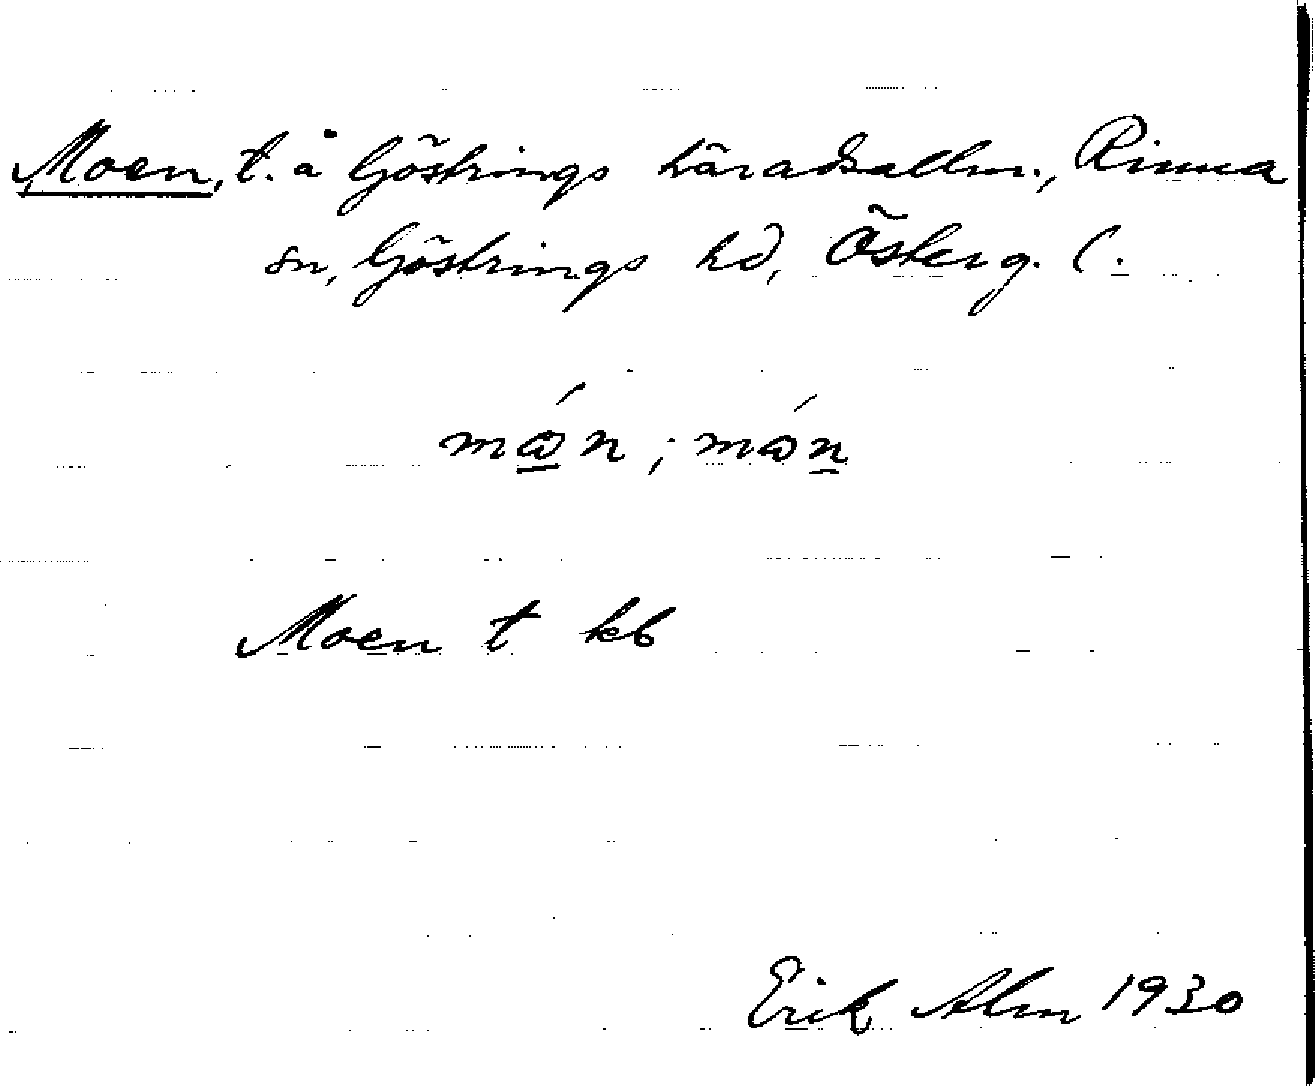 Moen, t. å Göstrings häradsallm., Rinna
sn, Göstrings hd, Österg. l.
món; món
Moen t kb
Erik Alm 1930